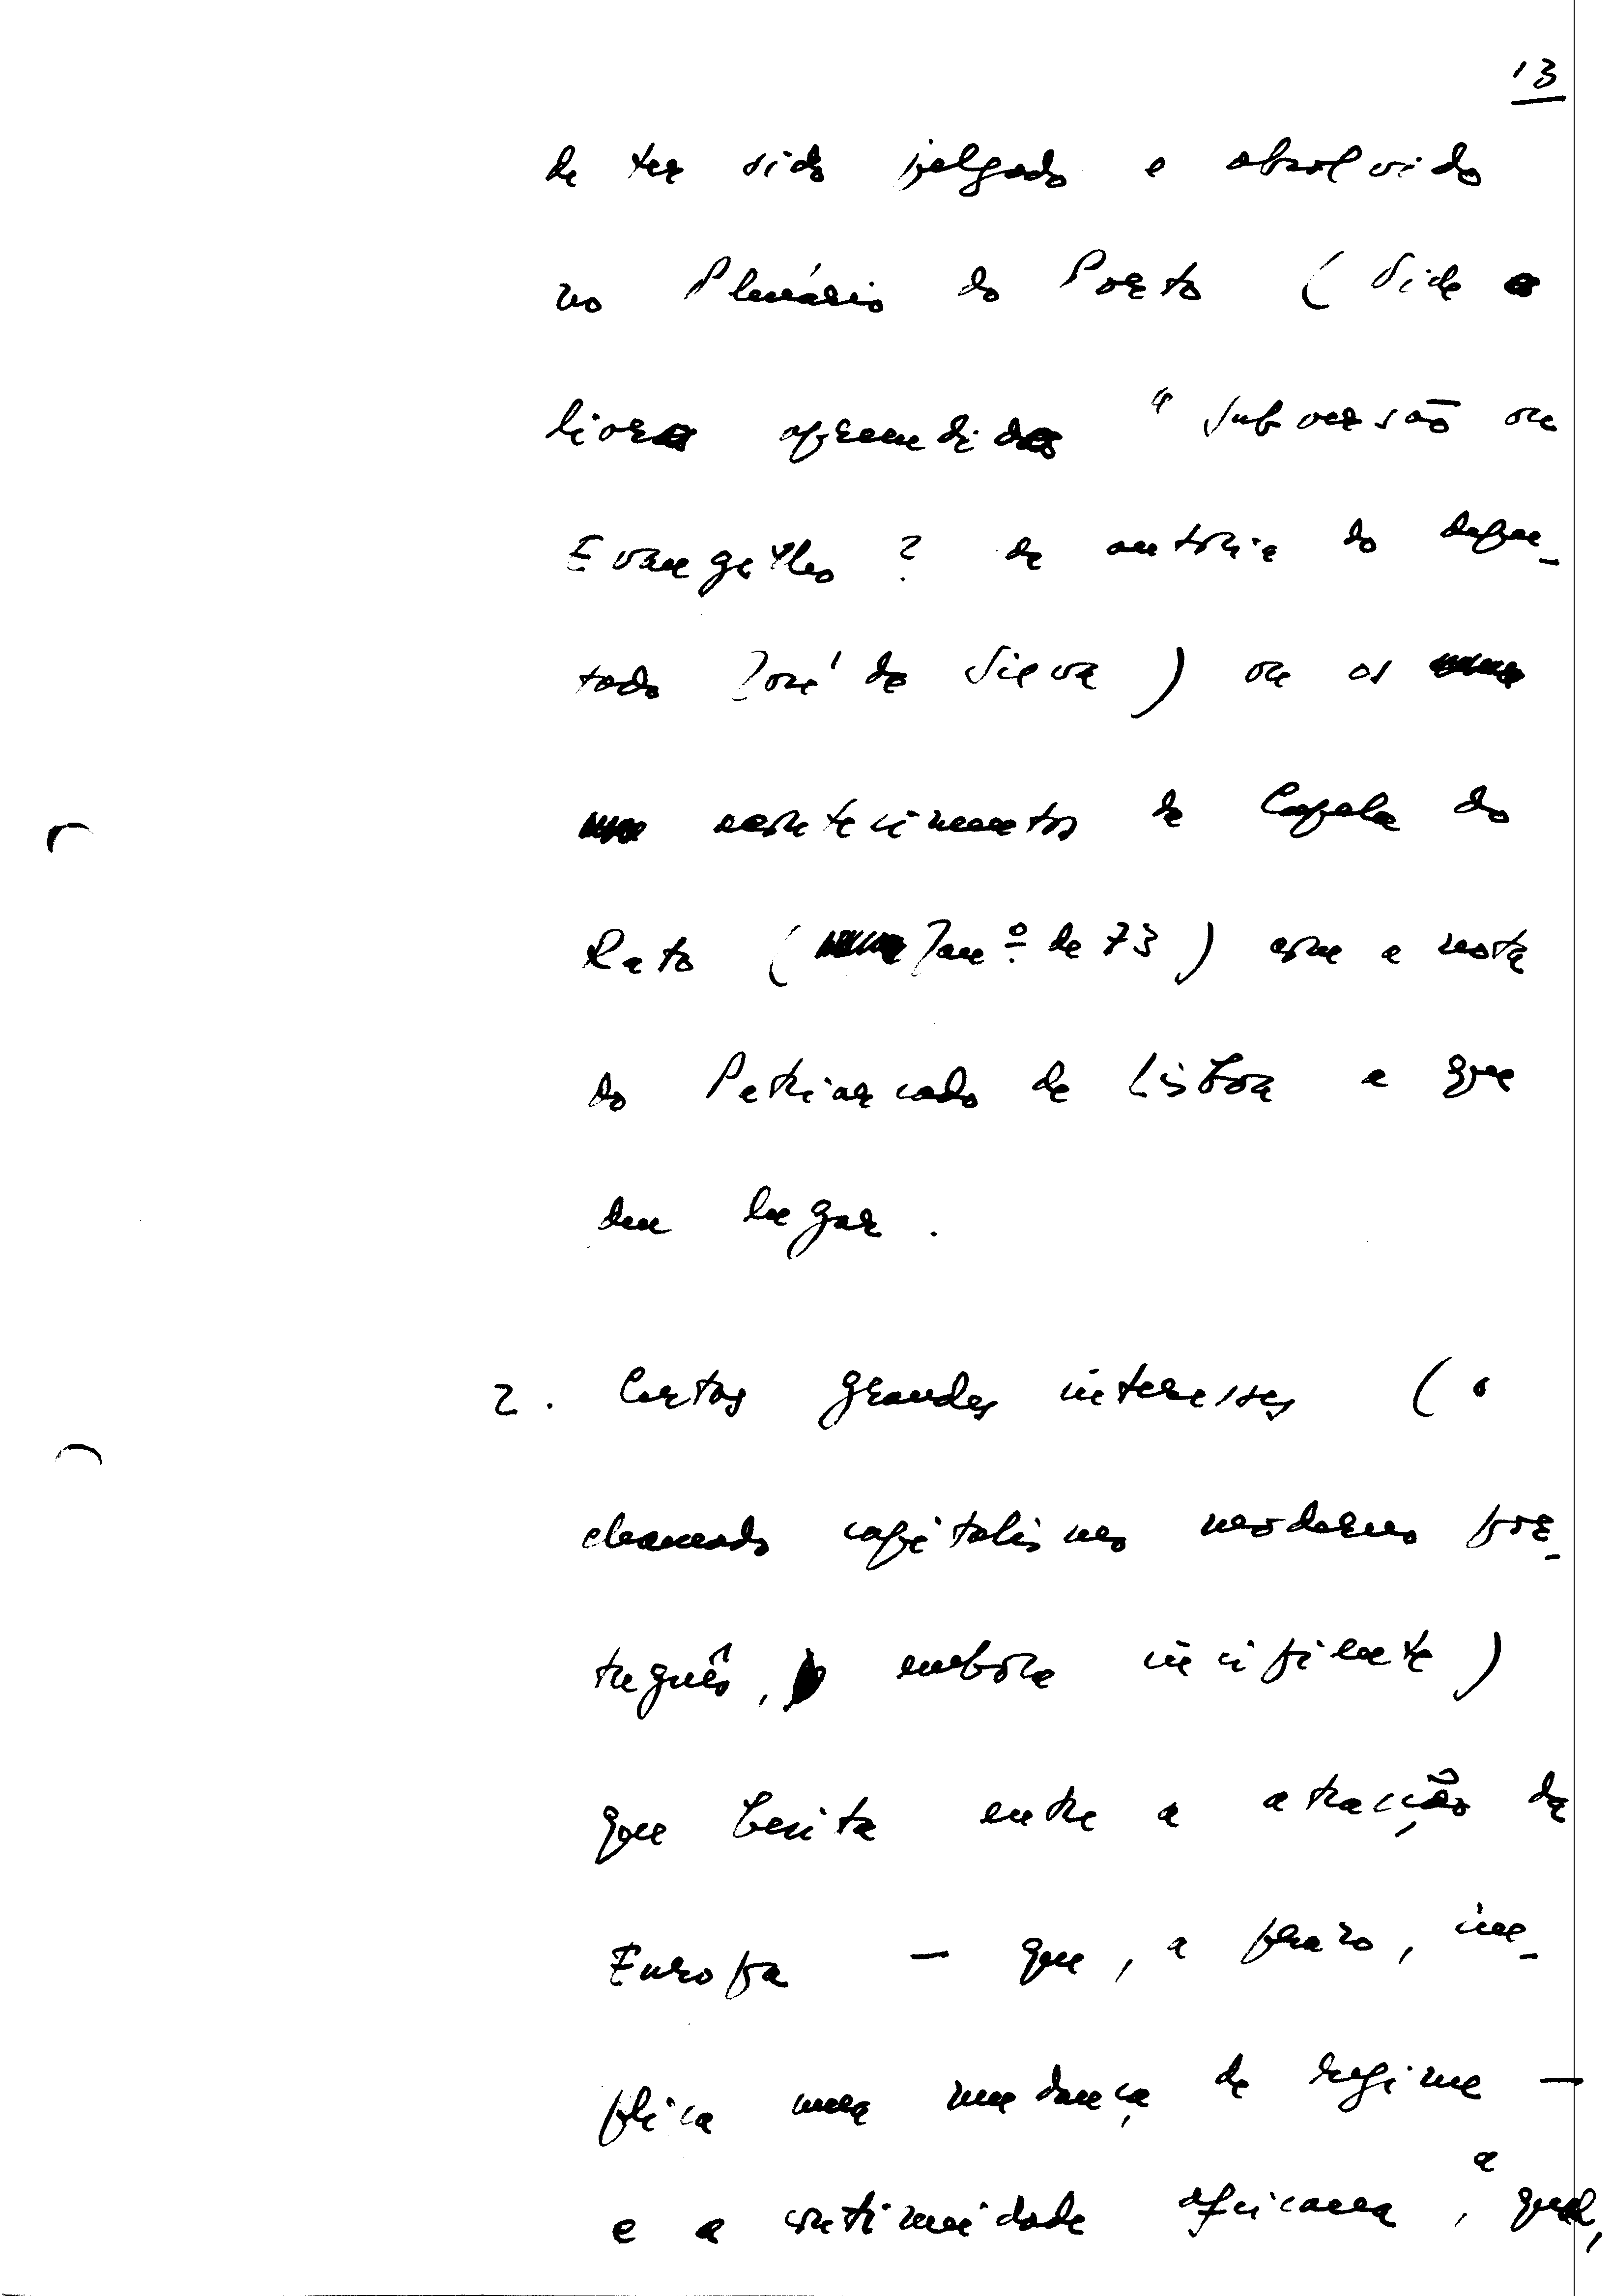 13
de ter sido julgado e absolvido
no Plenário do Porto (Vide o
livro apreendido "Subversão ou
Evangelho? de autoria do depu-
tado José da Silva) ou os
acontecimentos da Capela do
Rato (Janº de 73) com a nota
do Patriarcado de Lisboa a que
deu lugar.
2. Certos grandes interesses (o
chamado capitalismo moderno por-
tuguês, embora incipiente)
que hesita entre a atracção da
Europa — que, a prazo, im-
plica uma mudança de regime —
e a continuidade africana, a qual,